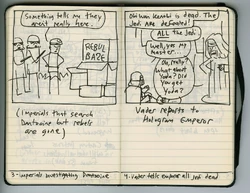 Something tell me they
arent really here.
REBUL
BAZE
(Imperials that search
Dantooine but rebels
are gone)
3-imperials investigating Dantooine
Obi Wan Kenobi is dead. The
Jedi are defeated!
ALL the Jedi?
Well, yes my
master.
Oh, really?
What about
Yoda? Did
you get
Yoda?
Vader reports to
Hologram Emperor
4. Vader tells empror all jedi dead